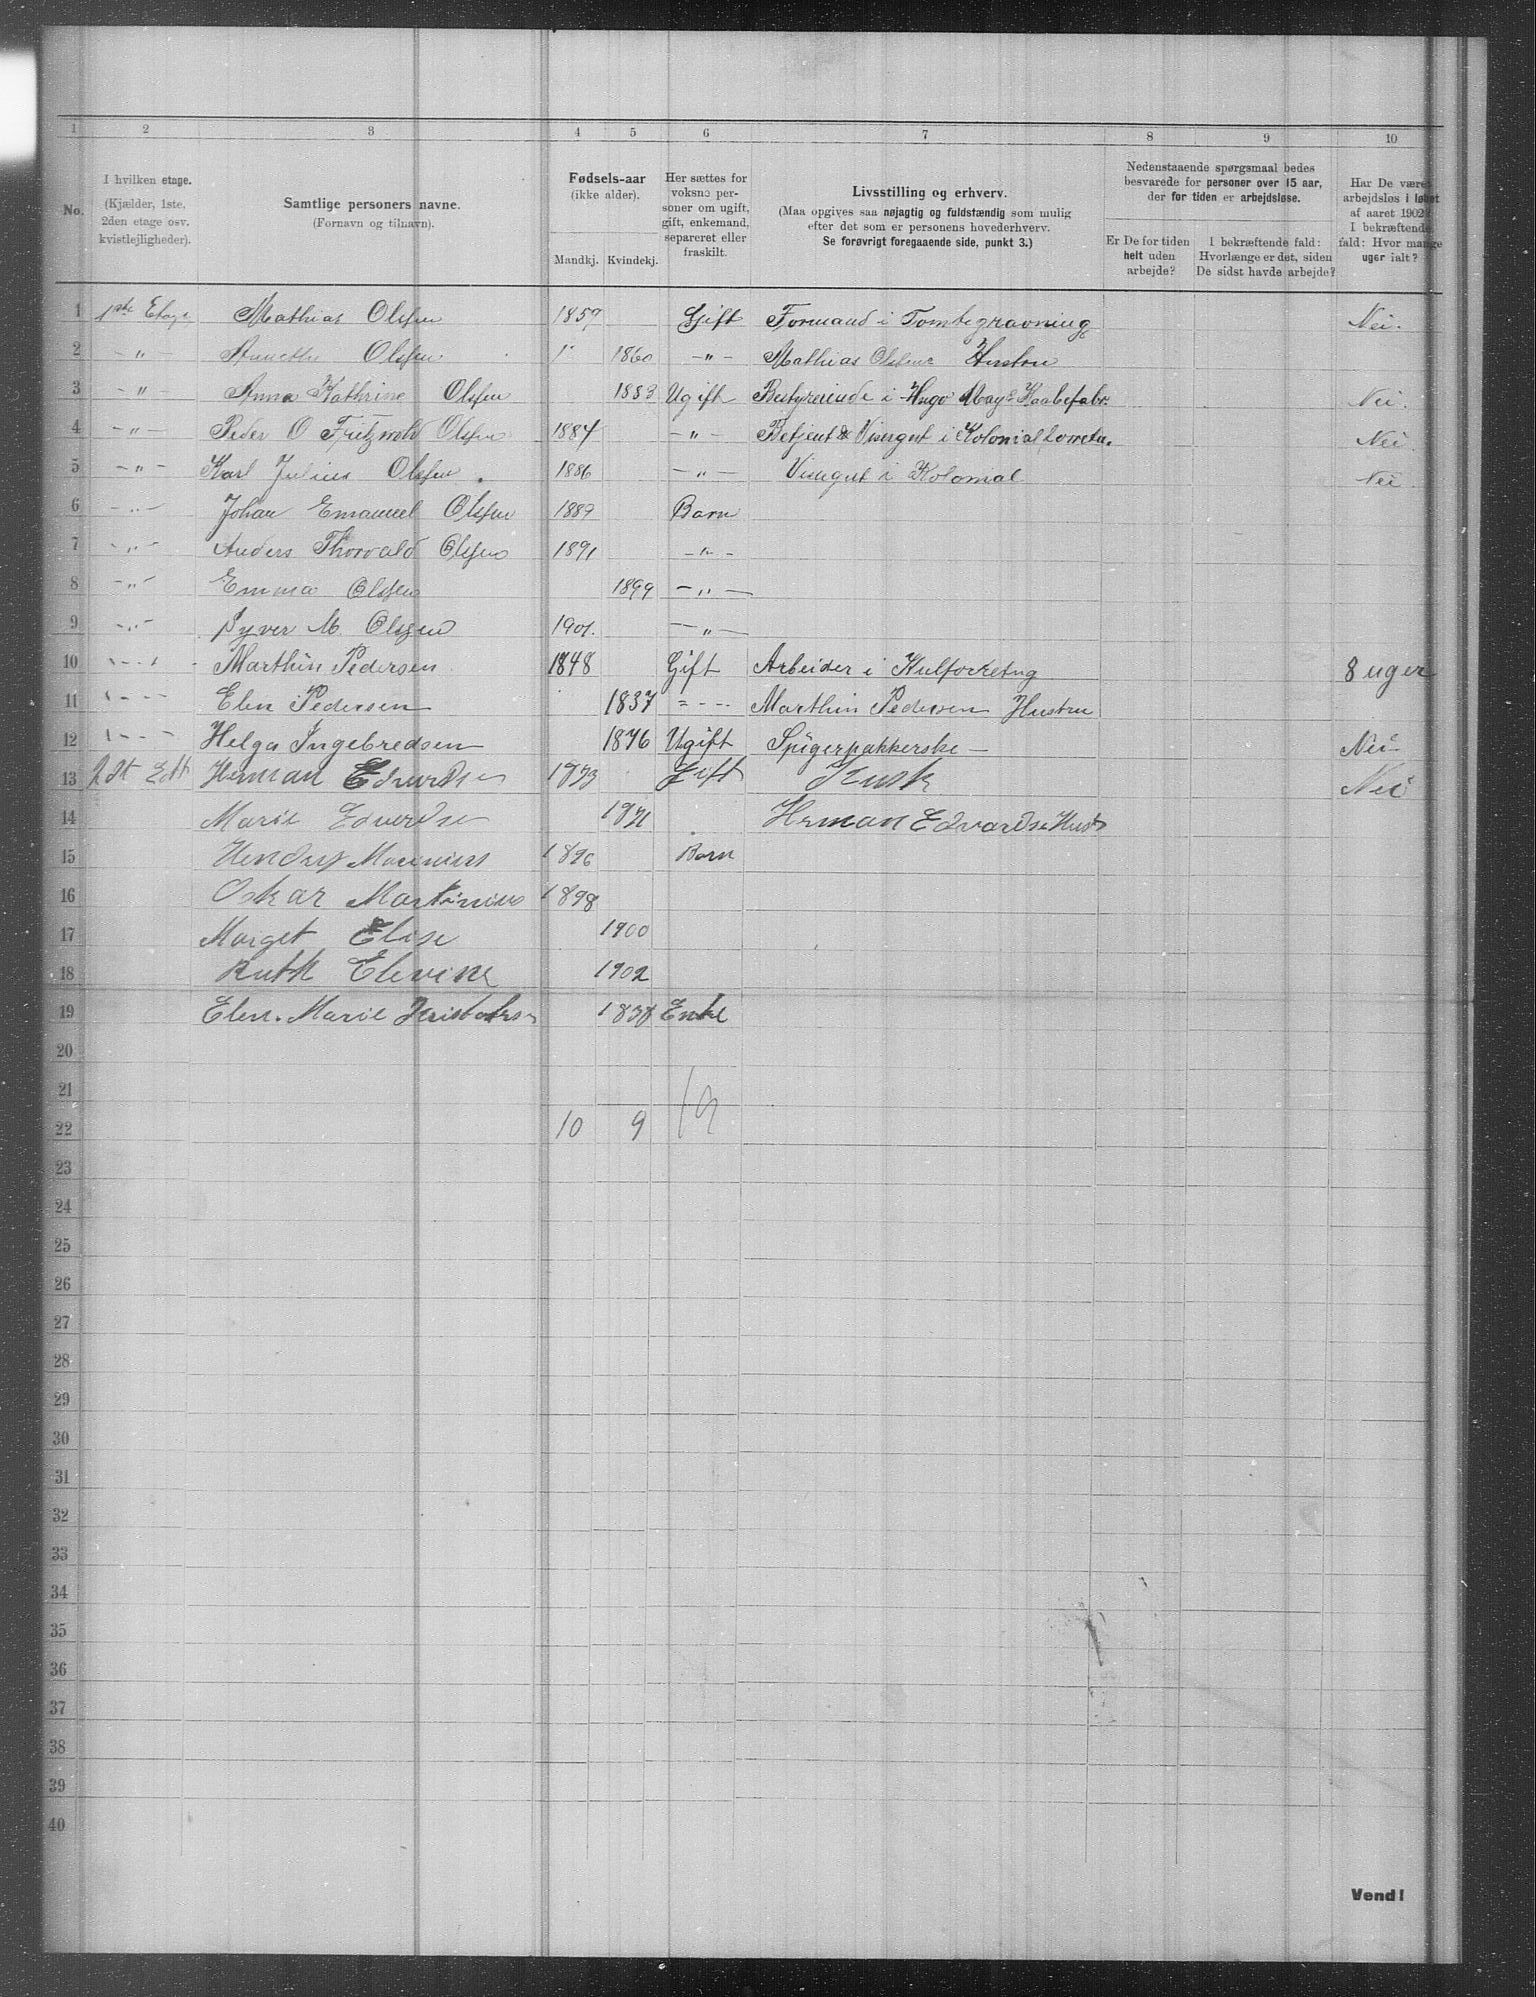 1 2 3 4 5 6 7 8 9 10
No.
I hvilken etage.
(Kjælder, 1ste,
2den etage osv.
kvistlejligheder).
Samtlige personers navne.
(Fornavn og tilnavn).
Fødsels-aar
(ikke alder).
Mandkj. Kvindekj.
Her sættes for
voksne per-
soner om ugift,
gift, enkemand,
separeret eller
fraskilt.
Livsstilling og erhverv.
(Maa opgives saa nøjagtig og fuldstændig som mulig
efter det som er personens hovederhverv.
Se forøvrigt foregaaende side, punkt 3.)
Nedenstaaende spørgsmaal bedes
besvarede for personer over 15 aar,
der for tiden er arbejdsløse.
Er De for tiden
helt uden
arbejde?
I bekræftende fald:
Hvorlænge er det, siden
De sidst havde arbejde?
Har De været
arbejdsløs i løbet
af aaret 1902?
I bekræftende
fald: Hvor mange
uger ialt?
1 1ste Etage Mathias Olsen 1857 Gift Formand i Tomtegravning Nei.
2 -"- Annette Olsen 1860 -"- Mathias Olsens Hustru
3 -"- Anna Kathrine Olsen 1883 Ugift Bestyrerinde i Hugo Mays Kaabefabr. Nei.
4 -"- Peder O Fritzvold Olsen 1884 -"- Betjent & Visergut i Kolonial Nei
5 -"- Karl Julius Olsen 1886 -"- Visergut i Kolonial Nei
6 -"- Johan Emanuel Olsen 1889 Barn
7 -"- Anders Thorvald Olsen 1891 -"-
8 -"- Emma Olsen 1899 -"-
9 -"- Syver M. Olsen 1901. -"-
10 -"- Marthin Pedersen 1848 Gift Arbeider i Kulforretng 8 uger
11 -"- Elen Pedersen 1837 -"- Marthin Pedersen Hustru
12 -"- Helga Ingebredsen 1876 Ugift Spigerpakkerske - Nei-
13 Herman Edvardsen 1873 Gift Kusk Nei
14 Marie Edvardsen 1871 Herman Edvardsen Hust
15 Marinius 1896 Barn
16 Oskar Martinius 1898
17 Marget Elise 1900
18 Ruth Elevine 1902
19 Elen. Marie 1838 Enke
20
21
22 10 9 19
23
24
25
26
27
28
29
30
31
32
33
34
35
36
37
38
39
40
Vend!